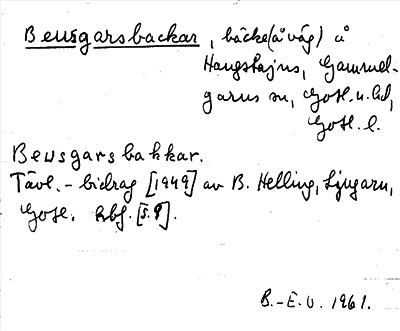 Beusgarsbackar, backe (å väg) å
Hangstajns, Gammel-
garns sn, Gotl. n. hd,
Gotl. l.
Beusgarsbakkar.
Tävl.-bidrag [1949] av B. Helling, Ljugarn,
Gotl. hbf. [s. 9].
B.-E. O. 1961.